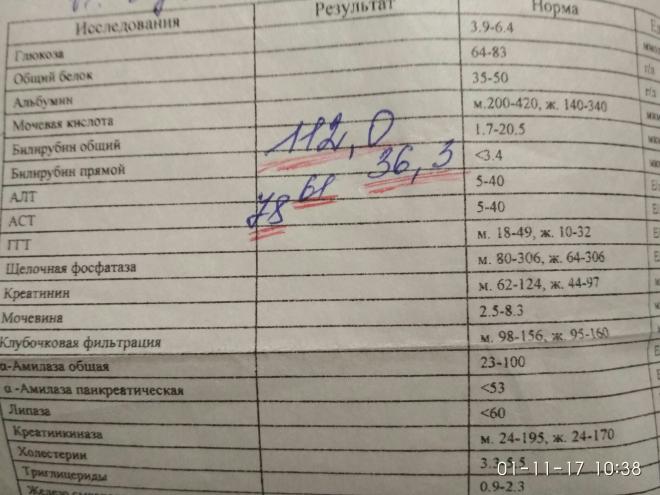 Исследования Результат Норма
Глюкоза 3.9-6.4
Общий белок 64-83
Альбумин 35-50 г/л
Мочевая кислота м.200-420, ж. 140-340
Билирубин общий 112,0 1.7-20.5
Билирубин прямой 36,3 <3.4
АЛТ 61 5-40
АСТ 78 5-40
ГГТ м. 18-49, ж. 10-32
Щелочная фосфатаза м. 80-306, ж. 64-306
Креатинин м. 62-124, ж. 44-97
Мочевина 2.5-8.3
Клубочковая фильтрация м. 98-156, ж. 95-160
α-Амилаза общая 23-100
α -Амилаза панкреатическая <53
Липаза <60
Креатинкиназа м. 24-195, ж. 24-170
Холестерин 3.2-5.5
Триглицериды 0.9-2.3
01-11-17 10:38